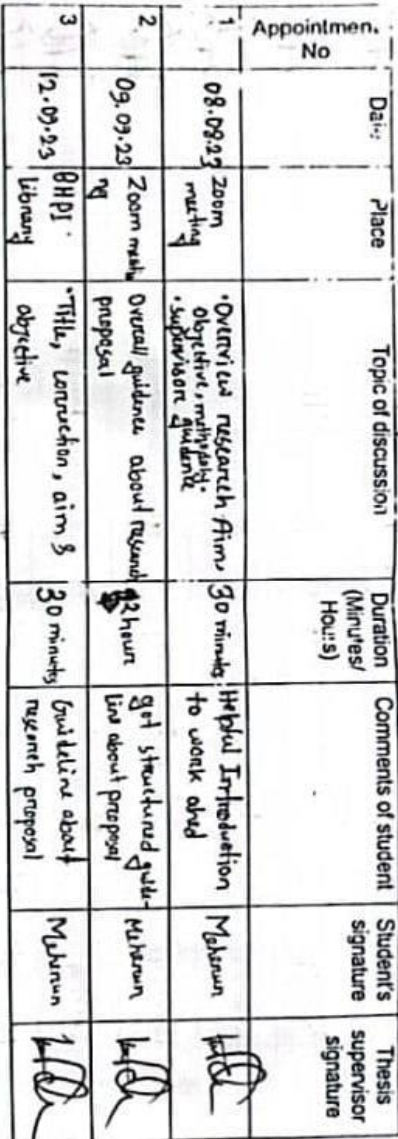 Appointmen. No
Date
Place
Topic of discussion
Duration (Minutes/ Hours)
Comments of student
Student's signature
Thesis supervisor signature
1
08.09.23
Zoom
meeting
•Overview research Aim,
objective, methodology.
•supervisor guidence
30 minutes
Helpful Introduction
to work ahed
Meherun
2
09.09.23
Zoom meeti
ng
Overall guidence about research
proposal
2 hour
got structured guide-
line about proposal
Meherun
3
12.09.23
BHPI.
library
•Title, correction, aim &
objective
30 minutes
Guideline about
research proposal
Meherun